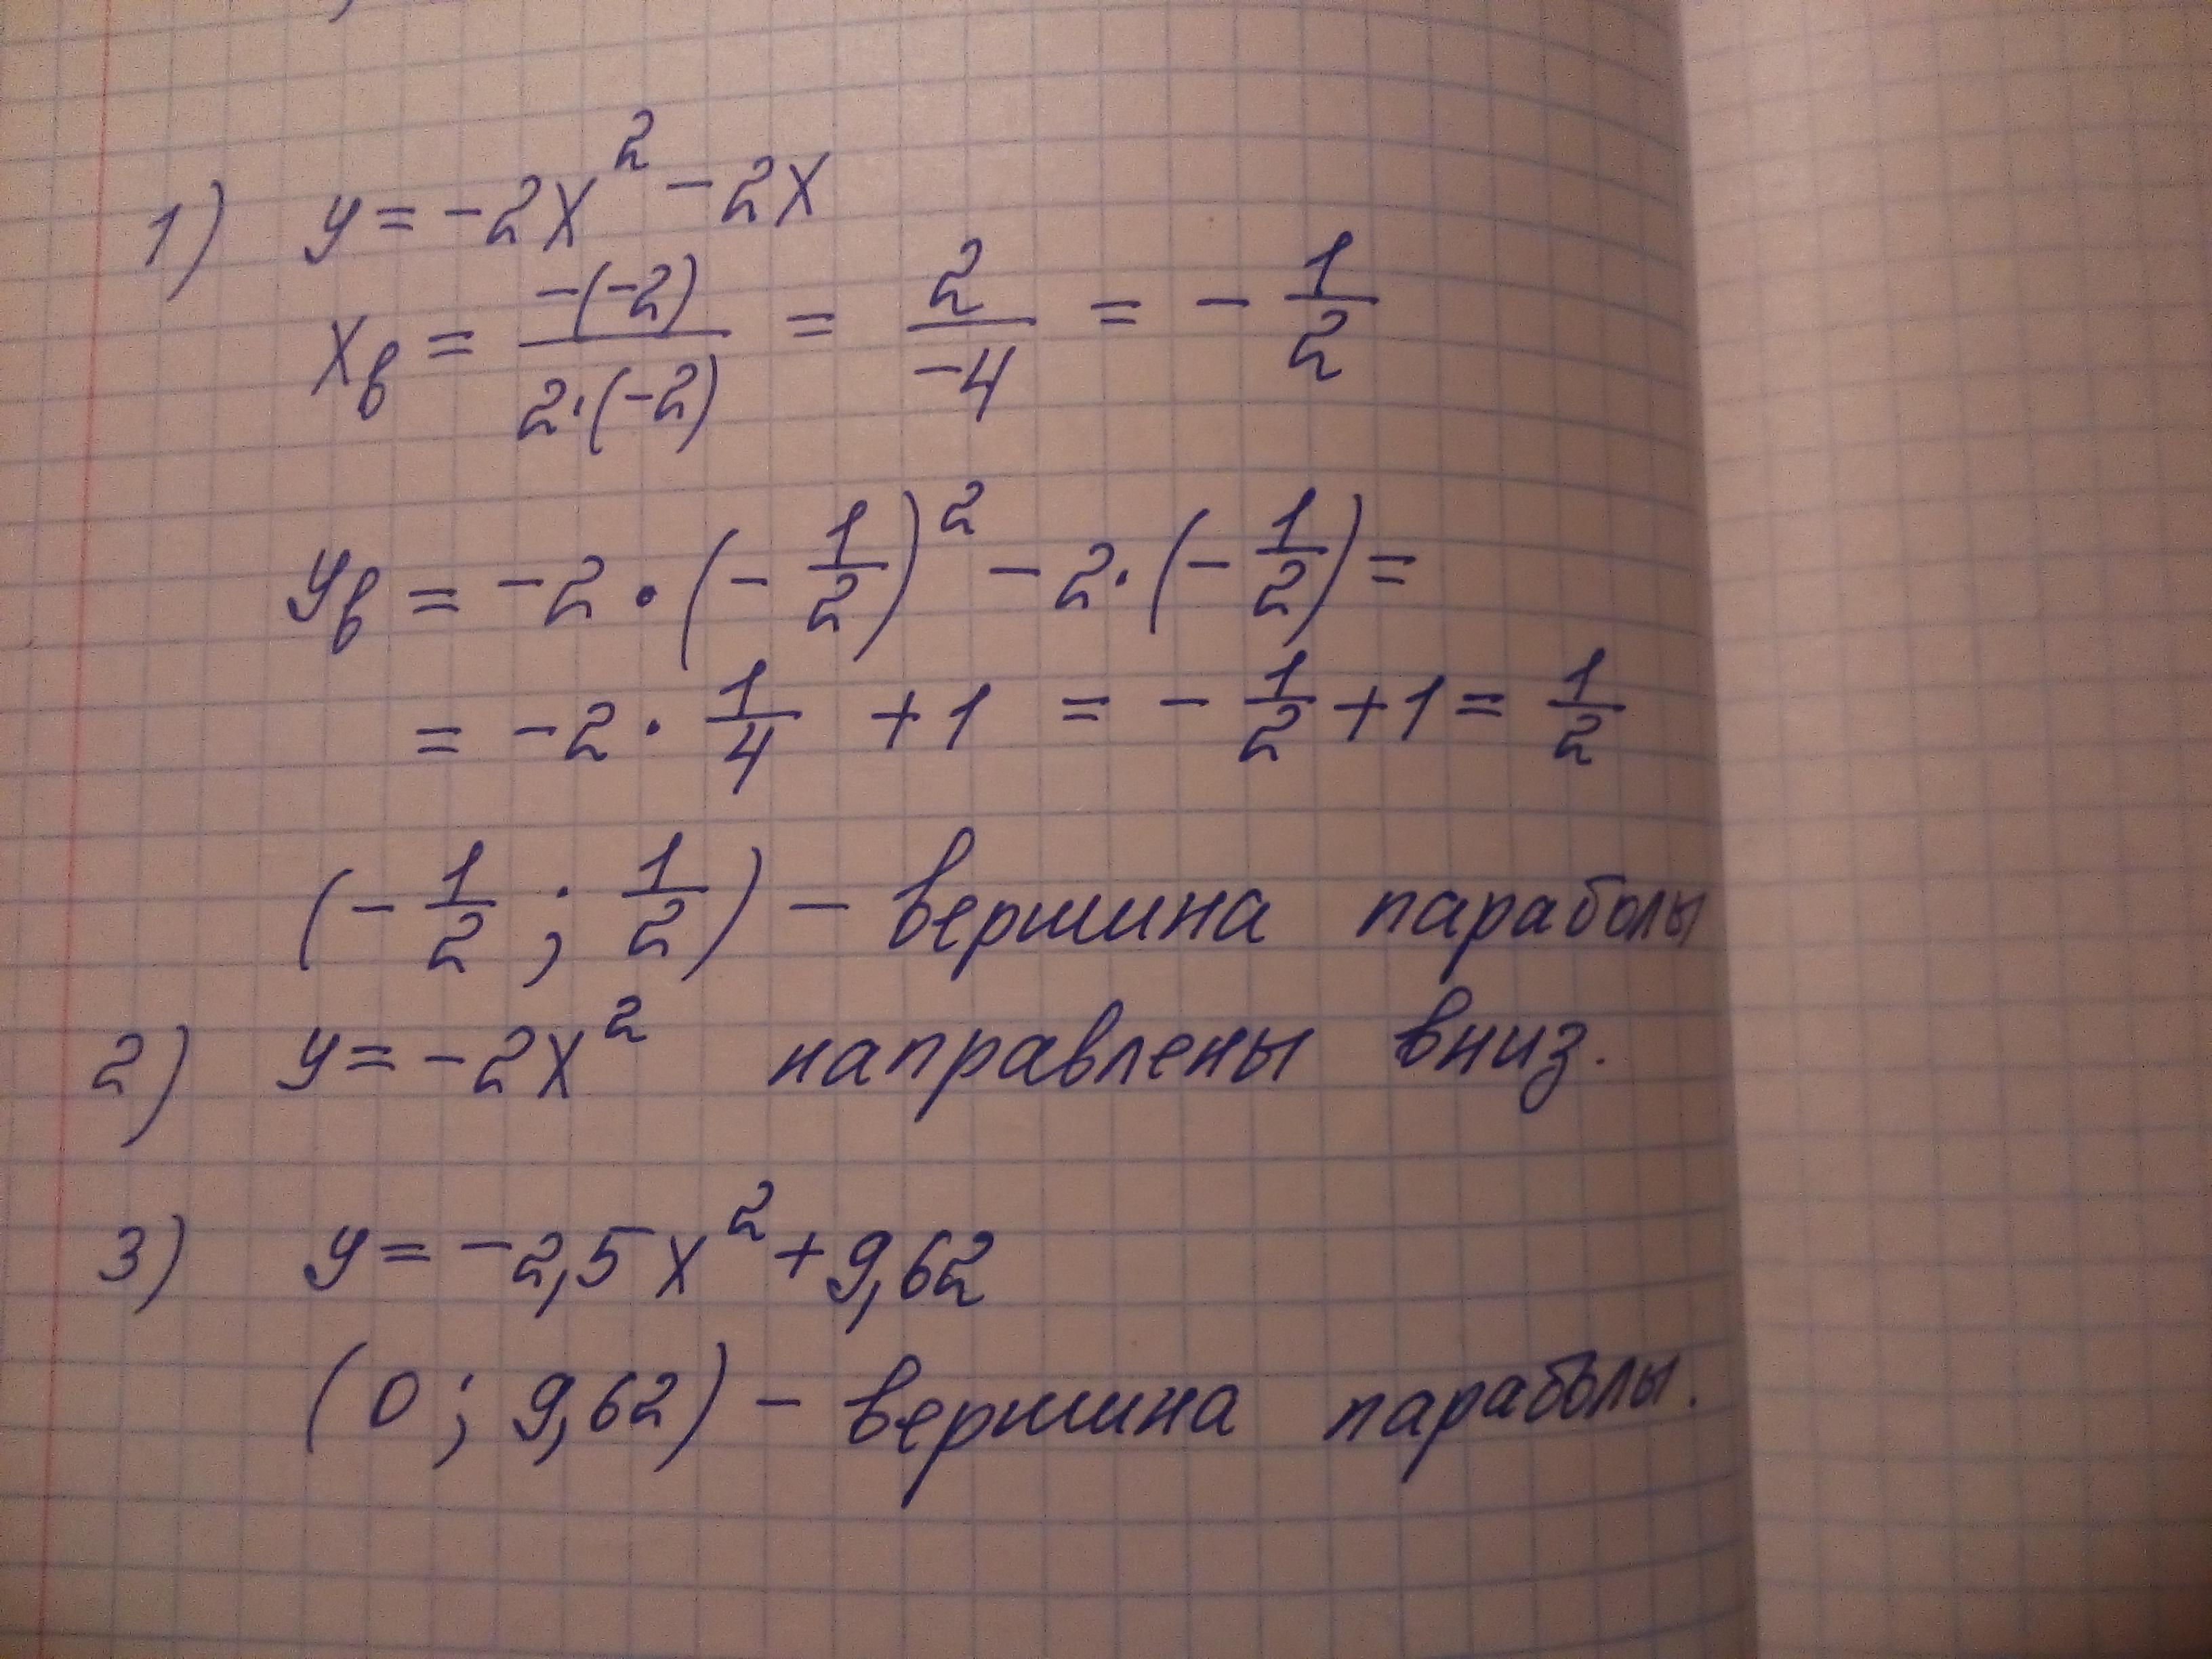 1) y = -2x² - 2x
xв = -(-2)/2·(-2) = 2/-4 = - 1/2
yв = -2 · (- 1/2)² - 2·(- 1/2) =
= -2 · 1/4 + 1 = - 1/2 + 1 = 1/2
(- 1/2 ; 1/2) - вершина параболы
2) y = -2x² направлены вниз.
3) y = -2,5x² + 9,62
(0 ; 9,62) - вершина параболы.